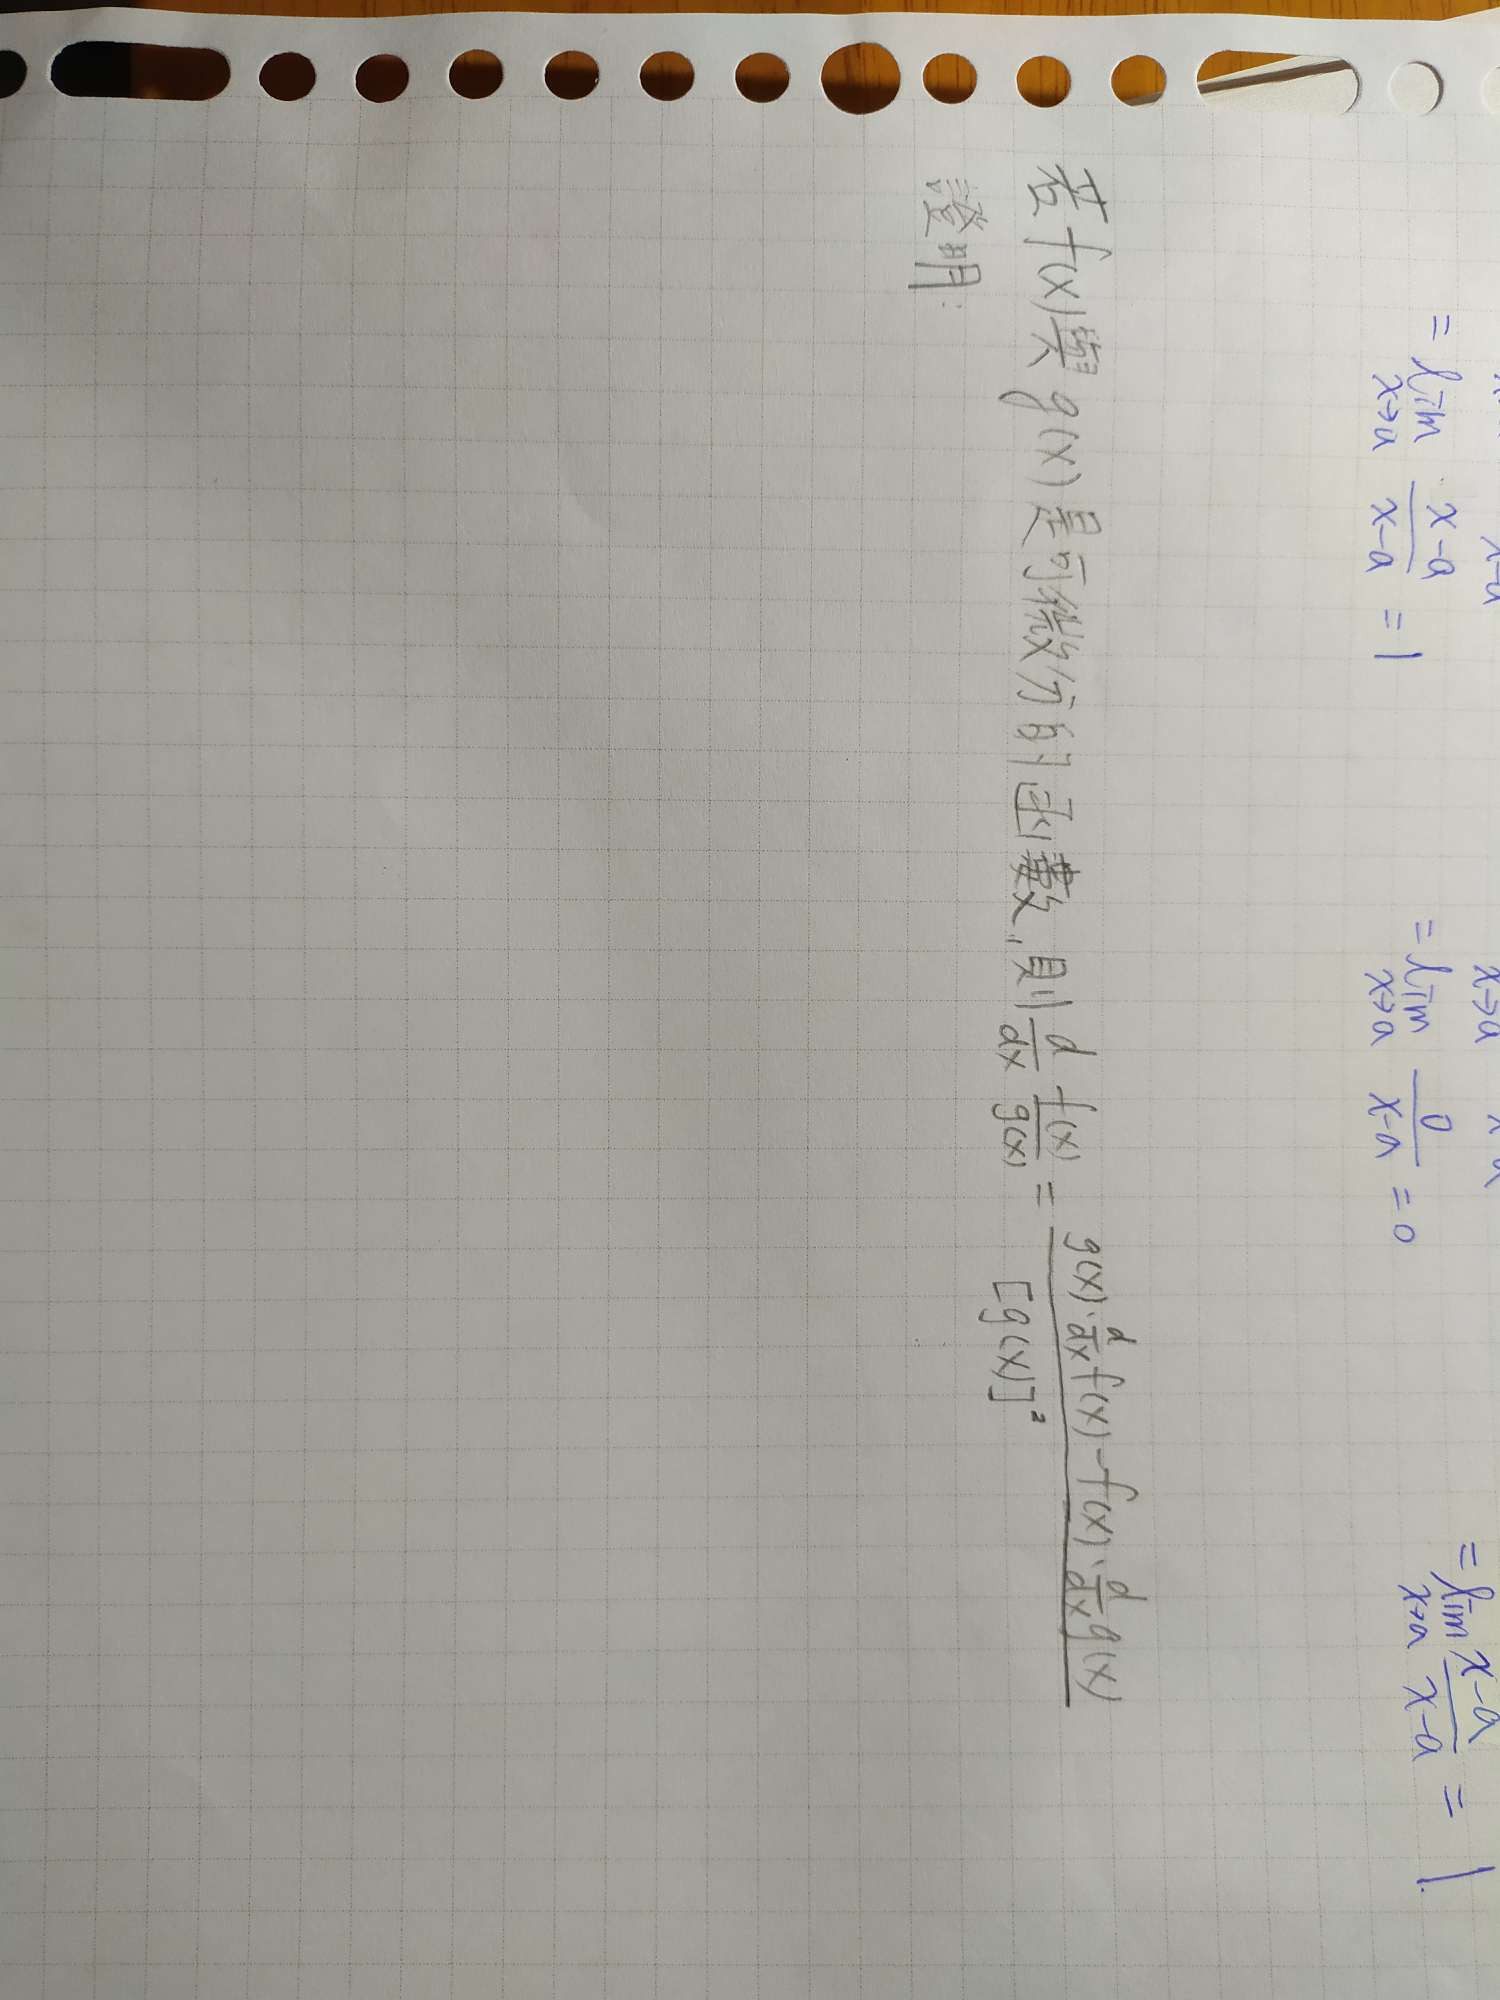 = lim x→a (x-a)/(x-a) = 1
= lim x→a 0/(x-a) = 0
= lim x→a (x-a)/(x-a) = 1
若 f(x) 與 g(x) 是可微分的函數, 則 d/dx f(x)/g(x) = (g(x)·d/dx f(x) - f(x)·d/dx g(x))/[g(x)]²
證明: